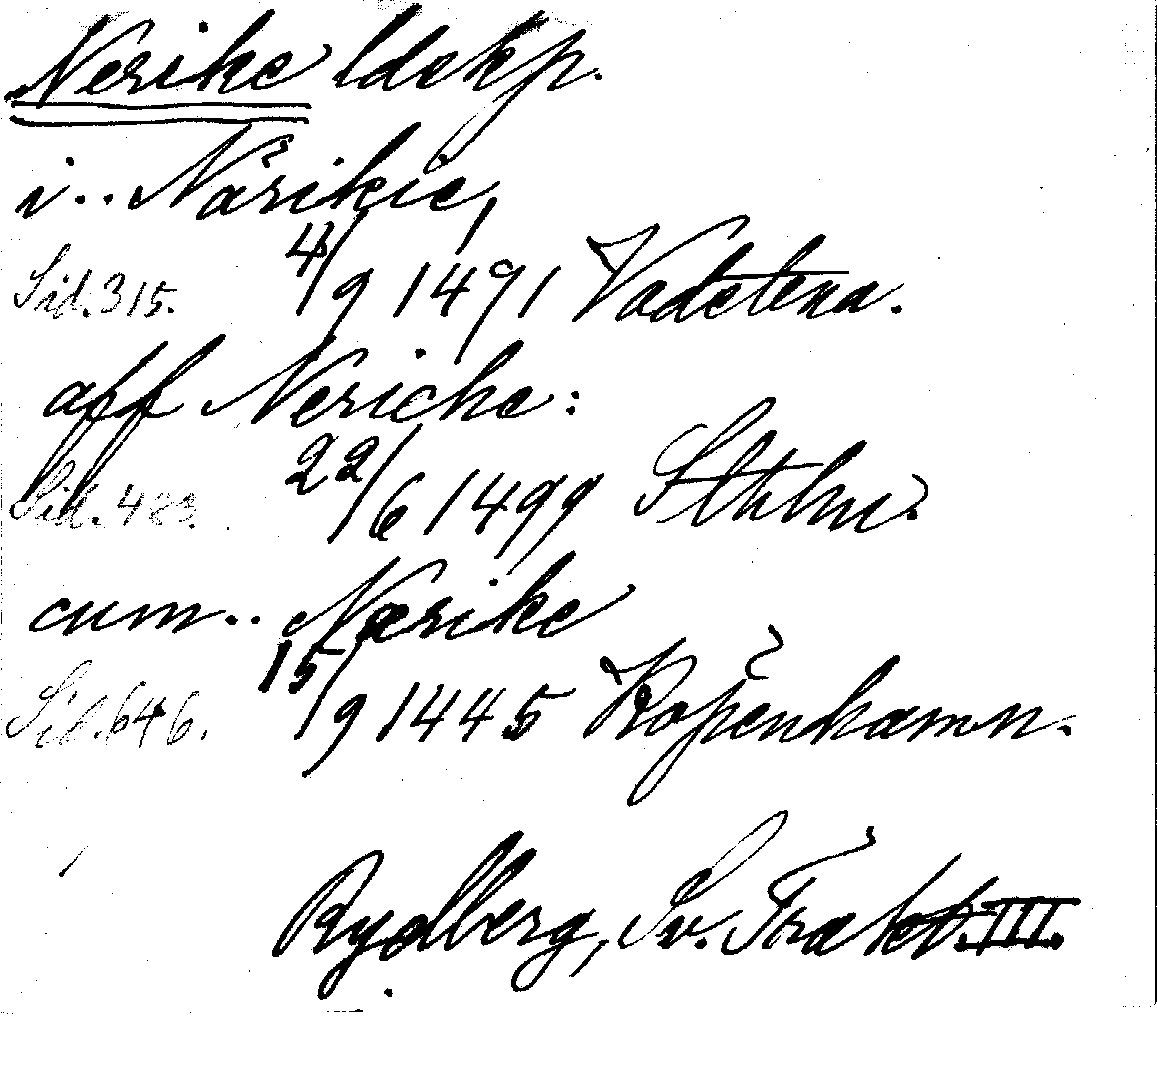 Nerike ldskp.
i.. Närikie,
Sid. 315. 4/9 1491 Vadstena.
aff Neriche:
Sid. 483. 22/6 1499 Sthlm.
cum.. Nærike
Sid. 646. 15/9 1445 Köpenhamn.
Rydberg, Sv. Trakt. III.